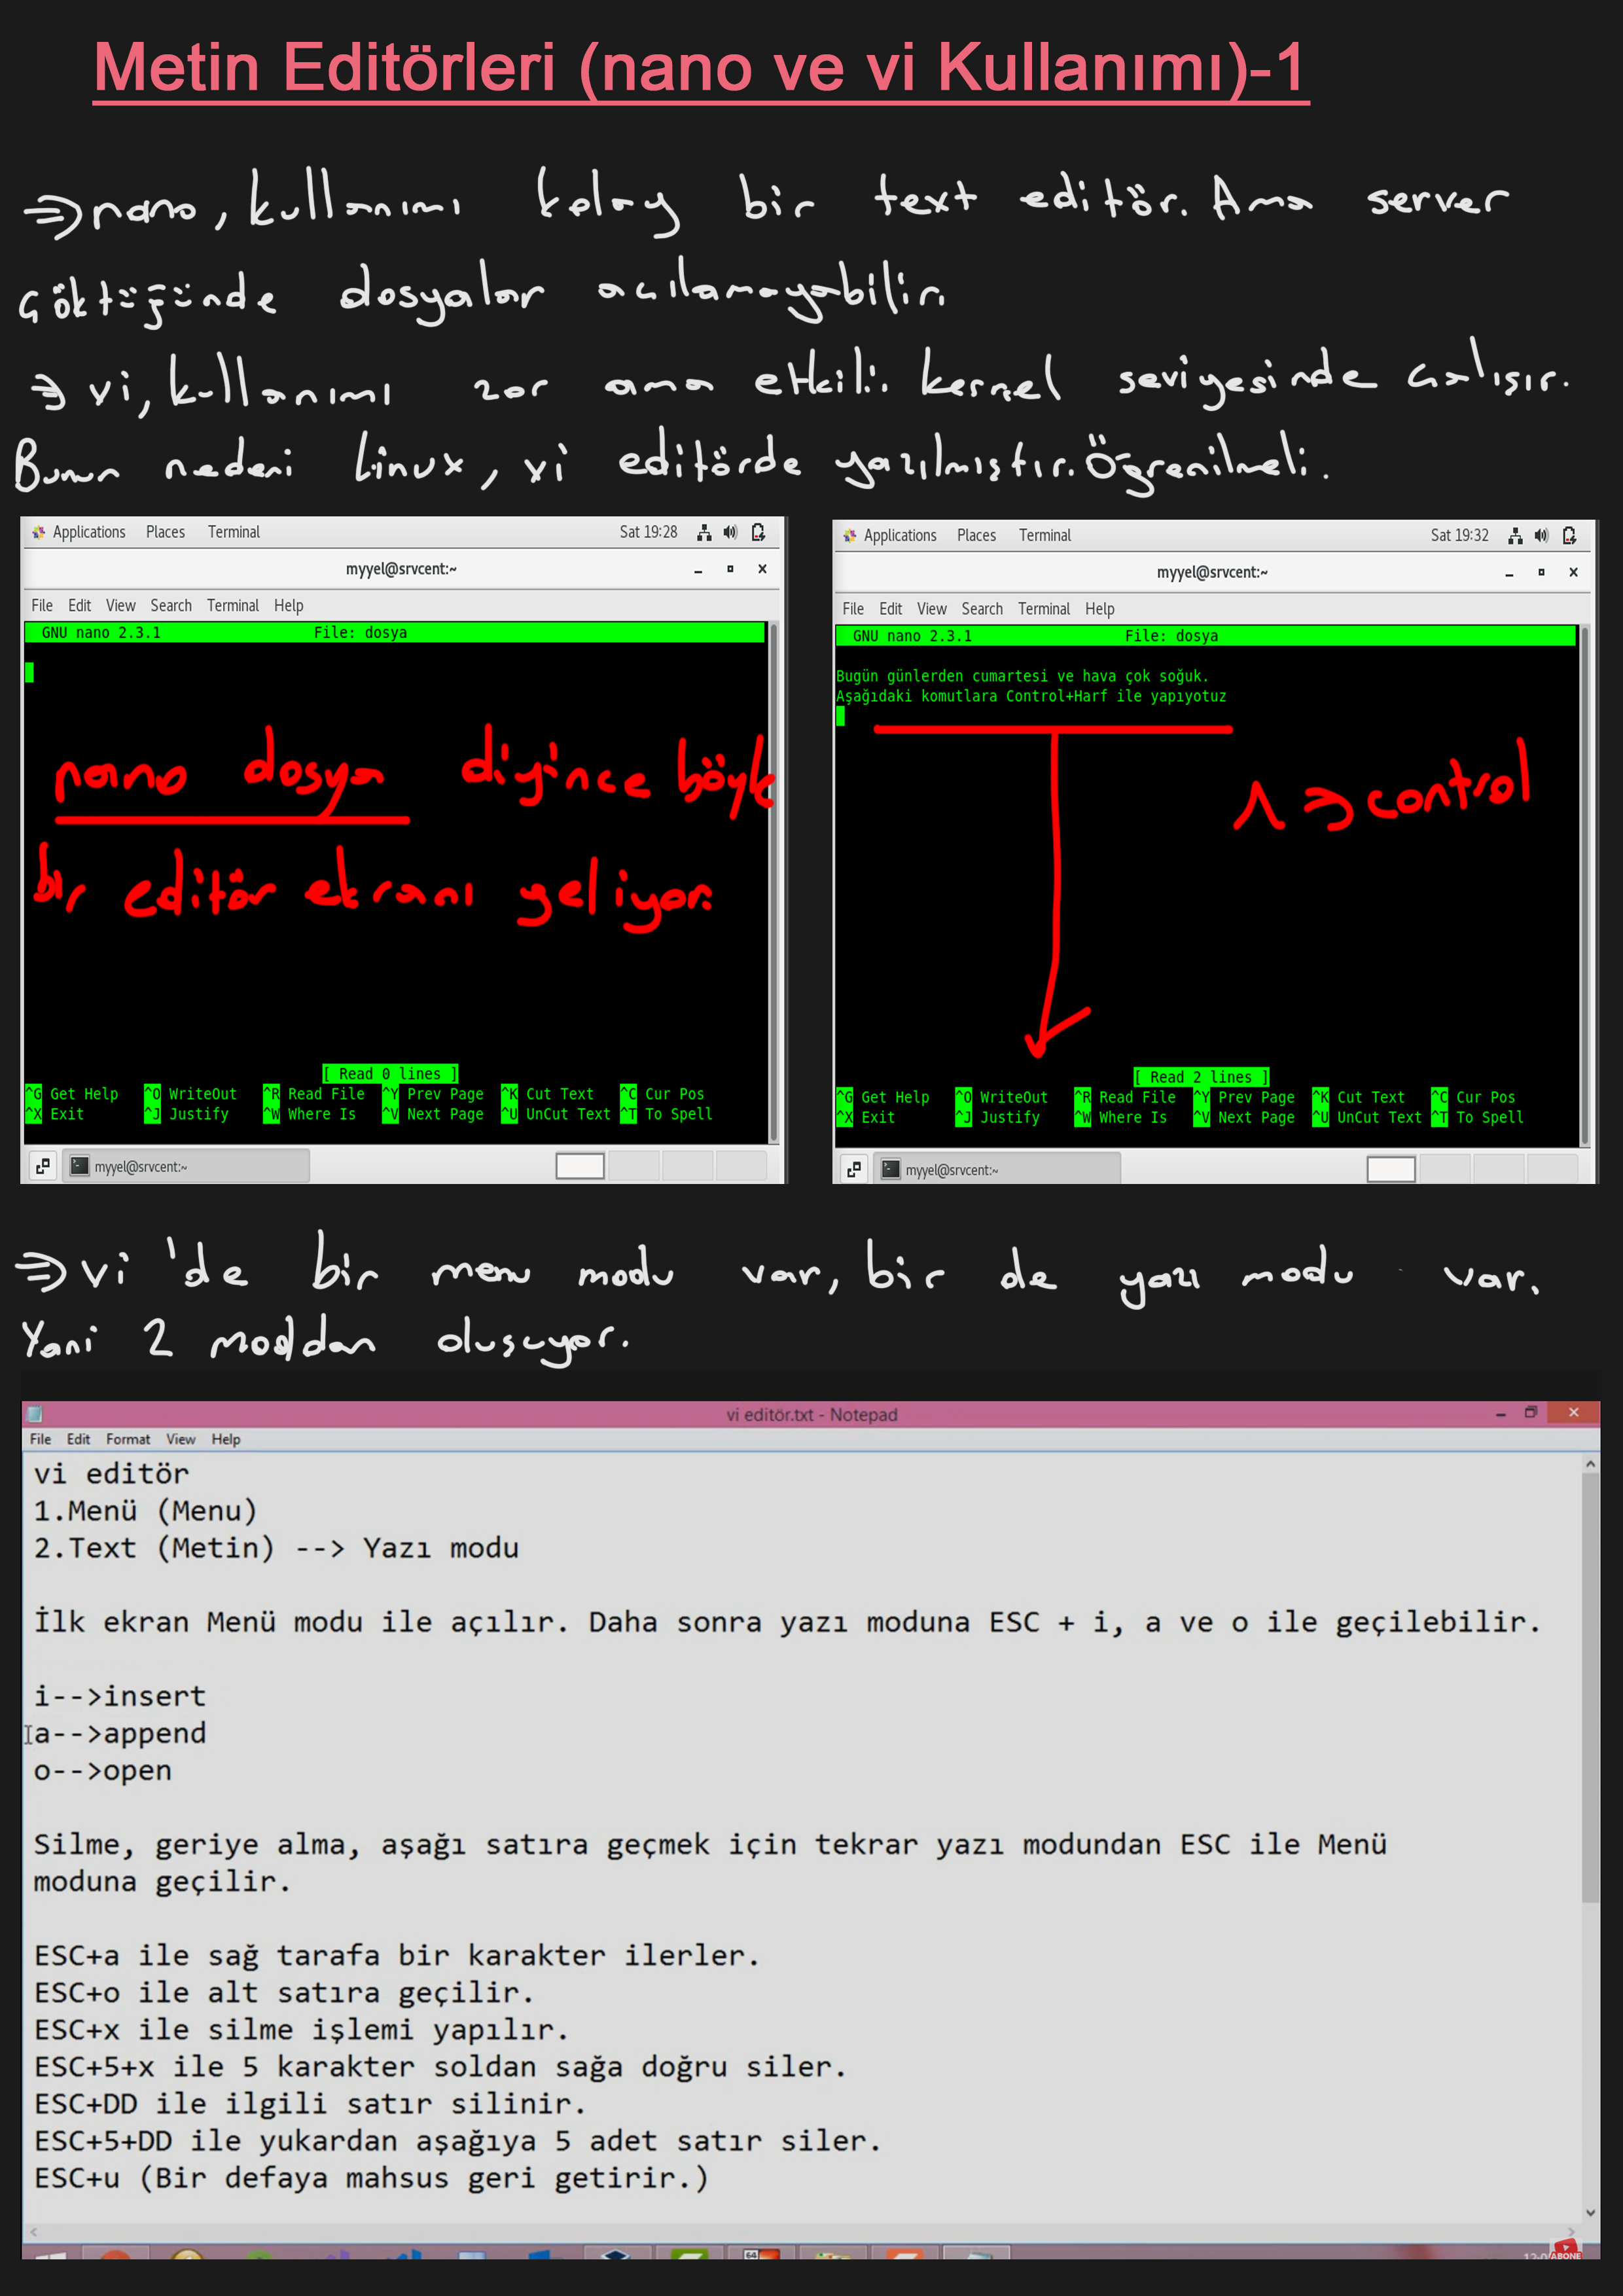 Metin Editörleri (nano ve vi Kullanımı)-1
⇒ nano, kullanımı kolay bir text editör. Ama server
çöktüğünde dosyalar açılamayabilir.
⇒ vi, kullanımı zor ama etkili. kernel seviyesinde çalışır.
Bunun nedeni Linux, vi editörde yazılmıştır. Öğrenilmeli.
Applications Places Terminal Sat 19:28
myyel@srvcent:~
File Edit View Search Terminal Help
GNU nano 2.3.1 File: dosya
nano dosya diyince böyle
bir editör ekranı geliyor.
[ Read 0 lines ]
^G Get Help ^O WriteOut ^R Read File ^Y Prev Page ^K Cut Text ^C Cur Pos
^X Exit ^J Justify ^W Where Is ^V Next Page ^U UnCut Text ^T To Spell
myyel@srvcent:~
Applications Places Terminal Sat 19:32
myyel@srvcent:~
File Edit View Search Terminal Help
GNU nano 2.3.1 File: dosya
Bugün günlerden cumartesi ve hava çok soğuk.
Aşağıdaki komutlara Control+Harf ile yapıyotuz
^ ⇒ control
[ Read 2 lines ]
^G Get Help ^O WriteOut ^R Read File ^Y Prev Page ^K Cut Text ^C Cur Pos
^X Exit ^J Justify ^W Where Is ^V Next Page ^U UnCut Text ^T To Spell
myyel@srvcent:~
⇒ vi 'de bir menu modu var, bir de yazı modu var.
Yani 2 moddan oluşuyor.
vi editör.txt - Notepad
File Edit Format View Help
vi editör
1.Menü (Menu)
2.Text (Metin) --> Yazı modu
İlk ekran Menü modu ile açılır. Daha sonra yazı moduna ESC + i, a ve o ile geçilebilir.
i-->insert
a-->append
o-->open
Silme, geriye alma, aşağı satıra geçmek için tekrar yazı modundan ESC ile Menü
moduna geçilir.
ESC+a ile sağ tarafa bir karakter ilerler.
ESC+o ile alt satıra geçilir.
ESC+x ile silme işlemi yapılır.
ESC+5+x ile 5 karakter soldan sağa doğru siler.
ESC+DD ile ilgili satır silinir.
ESC+5+DD ile yukardan aşağıya 5 adet satır siler.
ESC+u (Bir defaya mahsus geri getirir.)
64
ABONE